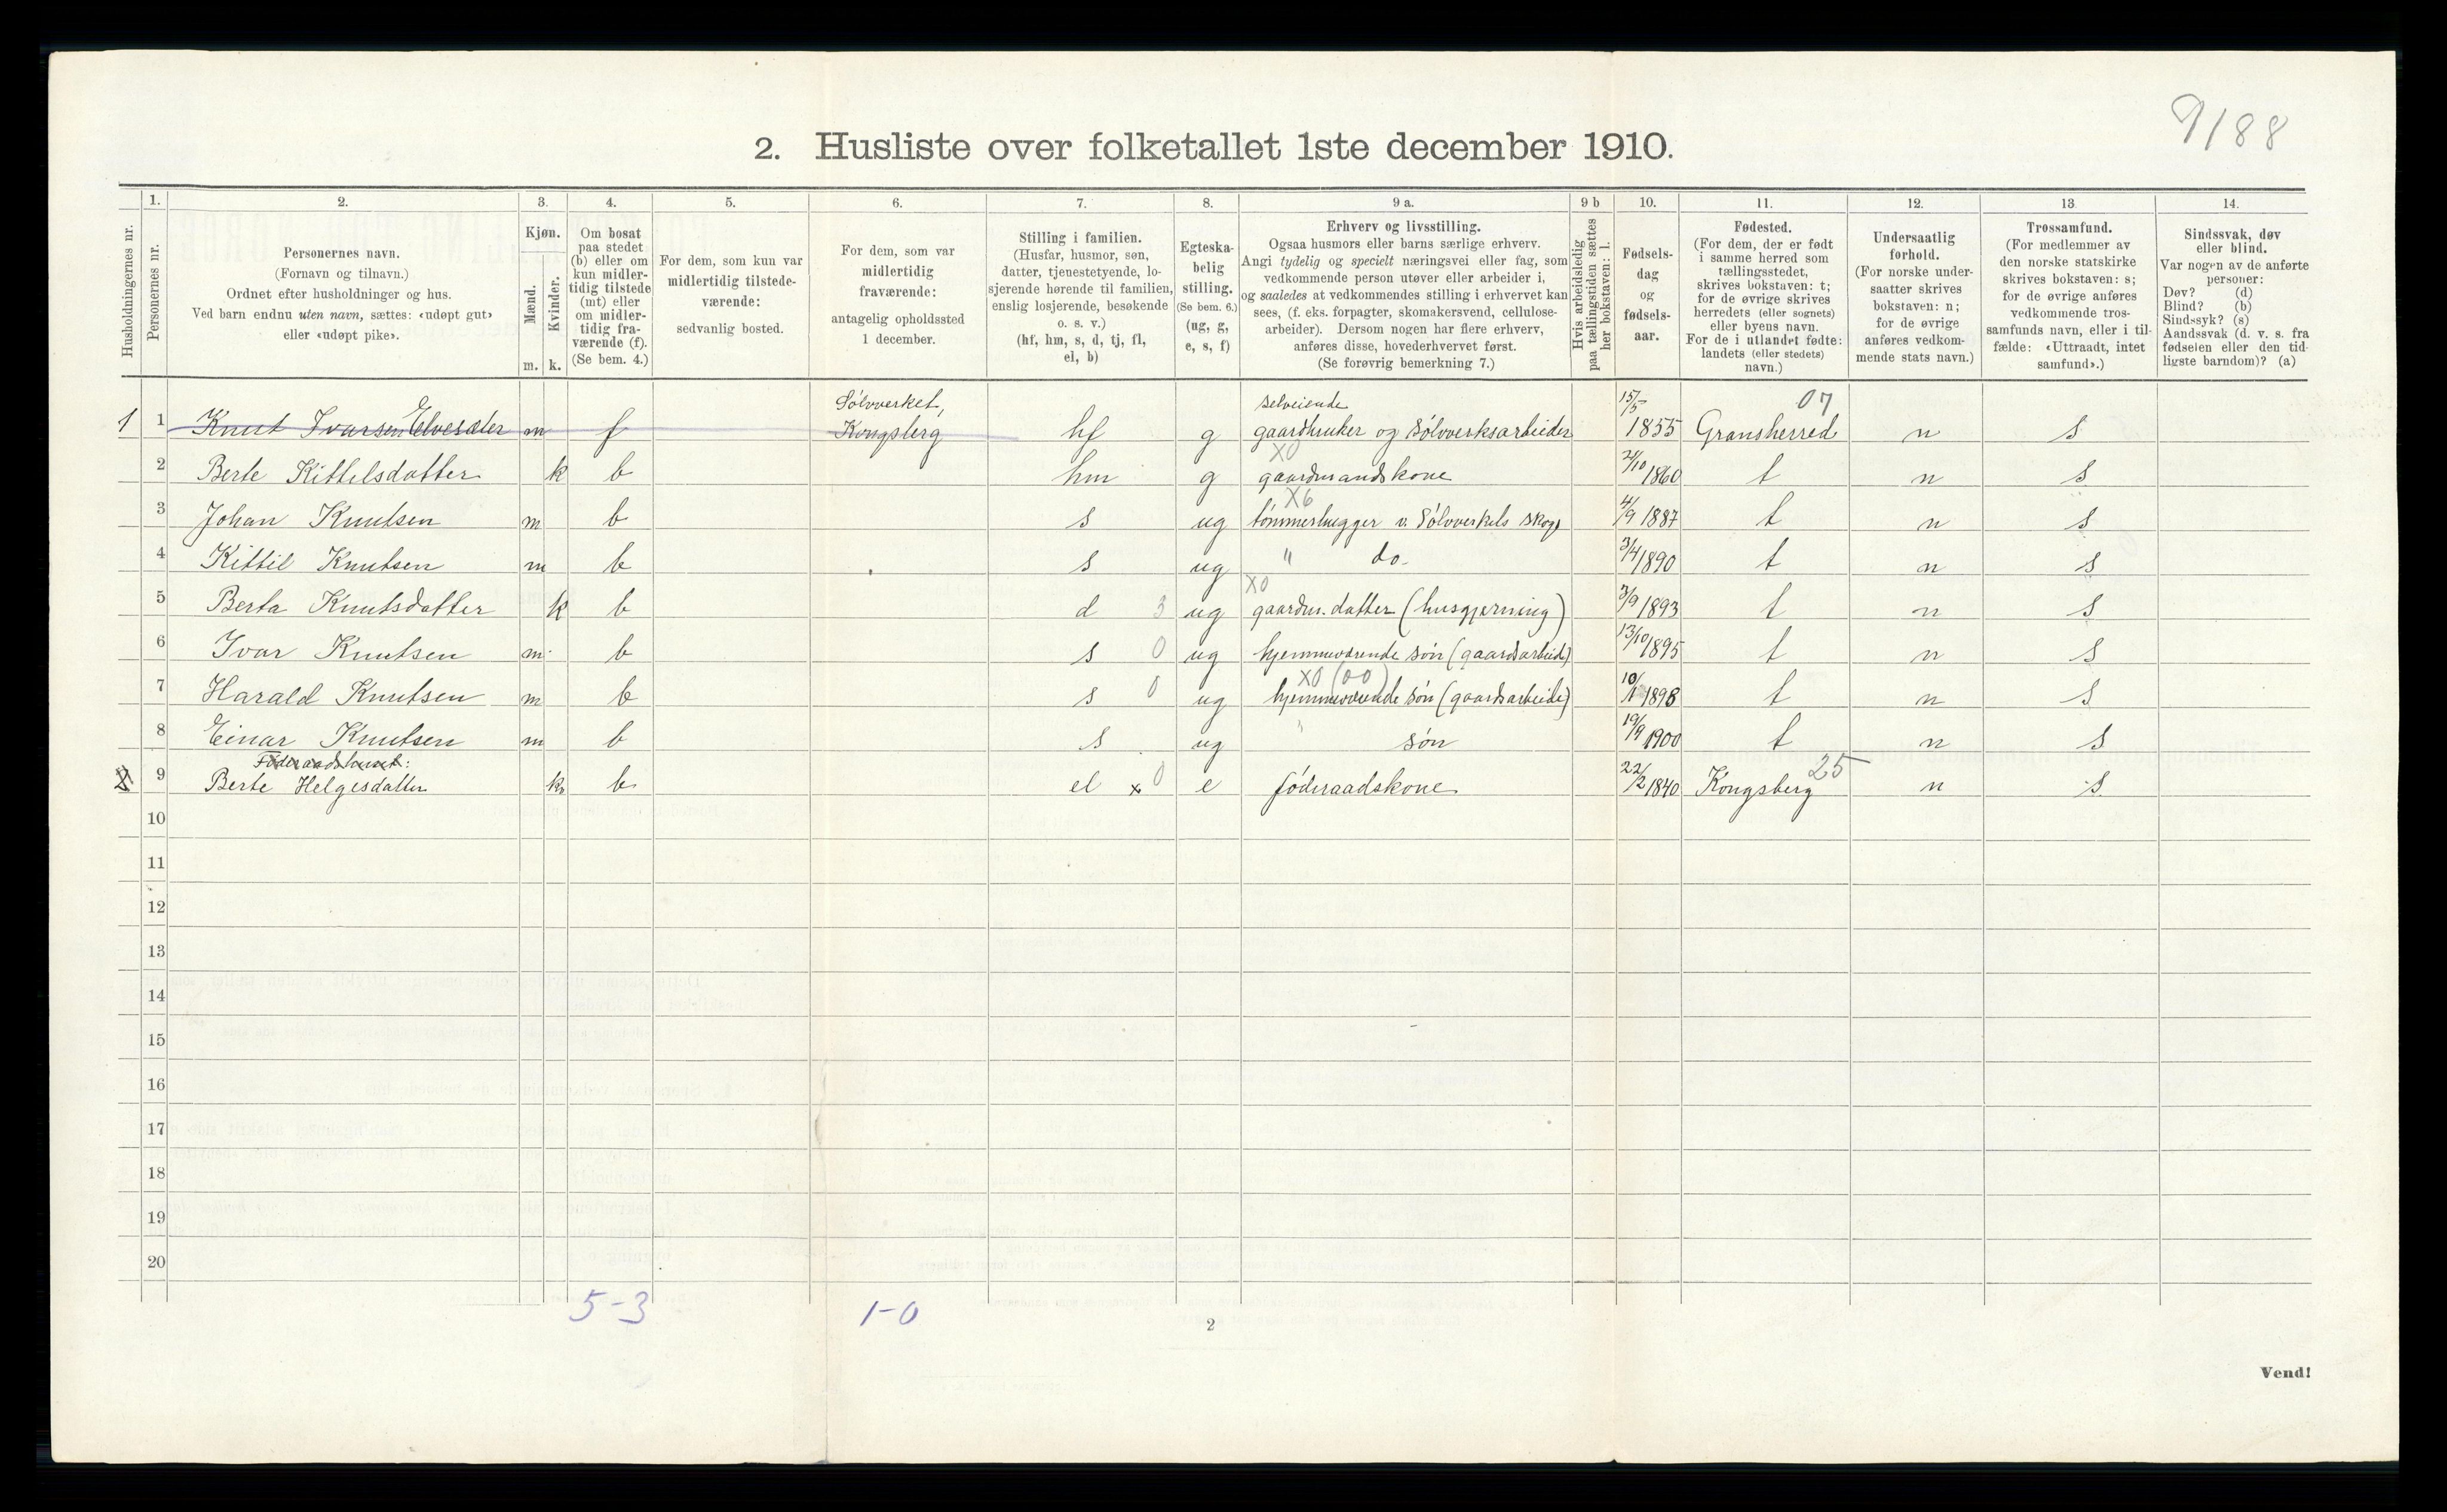 9/88
2. Husliste over folketallet 1ste december 1910.
1. 2. 3. 4. 5. 6. 7. 8. 9 a. 9 b 10. 11. 12. 13. 14.
Husholdningernes nr.
Personernes nr.
Personernes navn.
(Fornavn og tilnavn.)
Ordnet efter husholdninger og hus.
Ved barn endnu uten navn, sættes: «udøpt gut»
eller «udøpt pike».
Kjøn.
Mænd.
Kvinder.
m. k.
Om bosat
paa stedet
(b) eller om
kun midler-
tidig tilstede
(mt) eller
om midler-
tidig fra-
værende (f).
(Se bem. 4.)
For dem, som kun var
midlertidig tilstede-
værende:
sedvanlig bosted.
For dem, som var
midlertidig
fraværende:
antagelig opholdssted
1 december.
Stilling i familien.
(Husfar, husmor, søn,
datter, tjenestetyende, lo-
sjerende hørende til familien,
enslig losjerende, besøkende
o. s. v.)
(hf, hm, s, d, tj, fl,
el, b)
Egteska-
belig
stilling.
(Se bem. 6.)
(ug, g,
e, s, f)
Erhverv og livsstilling.
Ogsaa husmors eller barns særlige erhverv.
Angi tydelig og specielt næringsvei eller fag, som
vedkommende person utøver eller arbeider i,
og saaledes at vedkommendes stilling i erhvervet kan
sees, (f. eks. forpagter, skomakersvend, cellulose-
arbeider). Dersom nogen har flere erhverv,
anføres disse, hovederhvervet først.
(Se forøvrig bemerkning 7.)
Hvis arbeidsledig
paa tællingstiden sættes
her bokstaven: l.
Fødsels-
dag
og
fødsels-
aar.
Fødested.
(For dem, der er født
i samme herred som
tællingsstedet,
skrives bokstaven: t;
for de øvrige skrives
herredets (eller sognets)
eller byens navn.
For de i utlandet fødte:
landets (eller stedets)
navn.)
Undersaatlig
forhold.
(For norske under-
saatter skrives
bokstaven: n;
for de øvrige
anføres vedkom-
mende stats navn.)
Trossamfund.
(For medlemmer av
den norske statskirke
skrives bokstaven: s;
for de øvrige anføres
vedkommende tros-
samfunds navn, eller i til-
fælde: «Uttraadt, intet
samfund».)
Sindssvak, døv
eller blind.
Var nogen av de anførte
personer:
Døv? (d)
Blind? (b)
Sindssyk? (s)
Aandssvak (d. v. s. fra
fødselen eller den tid-
ligste barndom)? (a)
Sølvverket, selveiende 15/5 07
1 1 Knut Ivarsen Elvesæter m f Kongsberg hf g gaardbruker og Sølvverksarbeider 1855 Gransherred n s
X0
2 Berte Kittilsdatter k b hm g gaardmandskone 21/10 1860 t n s
X6
3 Johan Knutsen m b s ug tømmerhugger v. Sølvverkets skoge 4/9 1887 t n s
4 Kittil Knutsen m b s ug " do. 3/4 1890 t n s
X0
5 Berta Knutsdatter k b d 3 ug gaardm. datter (husgjerning) 3/9 1893 t n s
6 Ivar Knutsen m b s 0 ug hjemmeværende søn (gaardsarbeide) 13/10 1895 t n s
X0 (00)
7 Harald Knutsen m b s 0 ug hjemmeværende søn (gaardsarbeide) 10/1 1898 t n s
8 Einar Knutsen m b s ug " søn 19/9 1900 t n s
Føderaadshuset: 25
2 9 Berte Helgesdatter k b el x 0 e føderaadskone 22/2 1840 Kongsberg n s
10
11
12
13
14
15
16
17
18
19
20
5-3 1-0
2
Vend!